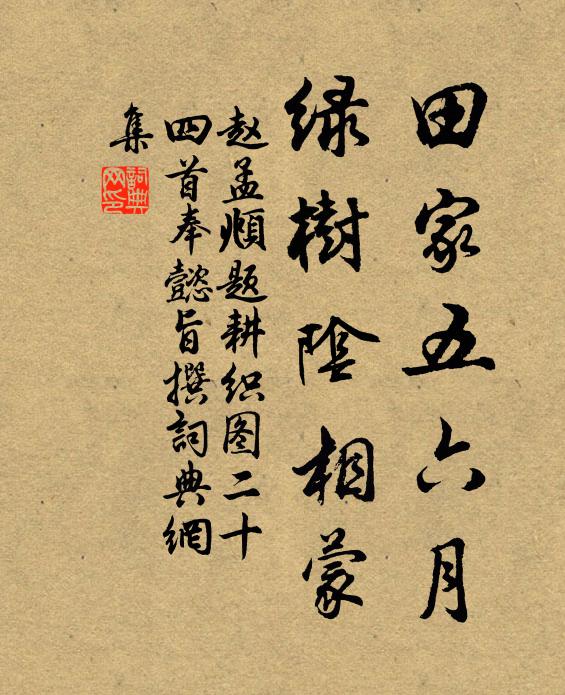 田家五六月
绿樹陰相蒙
赵孟頫题耕织图二十
四首奉懿旨撰詞典網
集
詞典网印